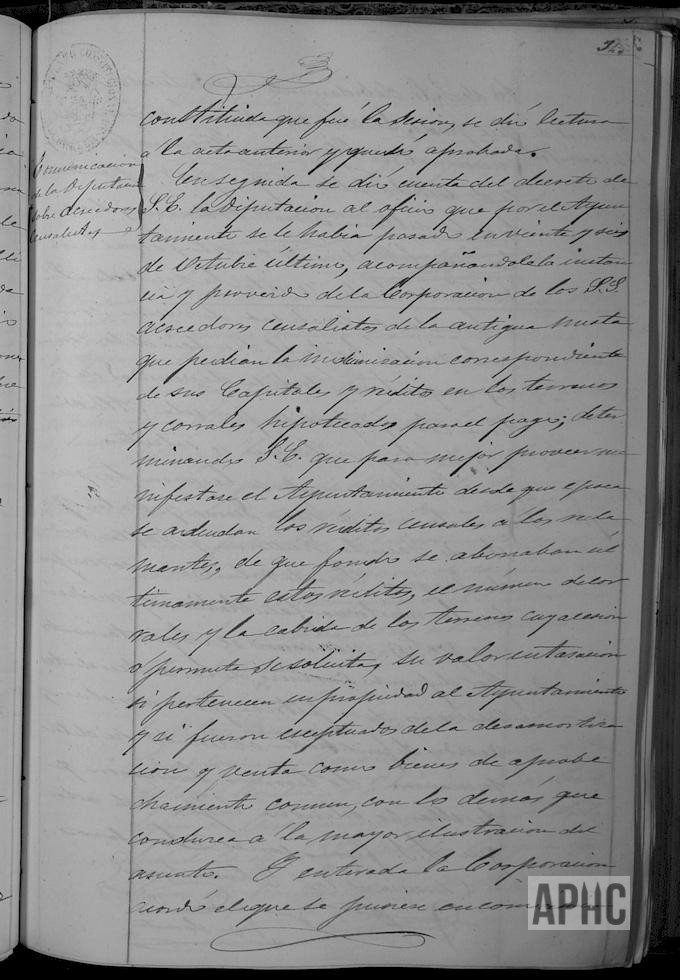 constituida que fué la sesion, se dió lectura
a la acta anterior y quedó aprobada.
Comunicacion
de la Diputacion
sobre acreedores
censalistas
Enseguida se dió cuenta del decreto de
S.E. la Diputacion al oficio que por el Ayun
tamiento se le habia pasado en veinte y seis
de Octubre ultimo, acompañandole la instan
cia y proveido de la Corporacion de los S.S.
acreedores censalistas de la antigua mesta
que pedian la indemnizacion correspondiente
de sus Capitales y réditos en los terrenos
y corrales hipotecados para el pago; deter
minando S.E. que para mejor proveer ma
nifestase el Ayuntamiento desde que epoca
se adeudan los réditos censales a los recla
mantes, de que fondo se abonaban ul
timamente estos réditos, el número de cor
rales y la cabida de los terrenos cuya cesion
o permuta se solicita, su valor en tasacion
si pertenecen en propiedad al Ayuntamiento
y si fueron esceptuados de la desamortiza
cion y venta como bienes de aprobe
chamiento comun, con lo demás que
conduzca a la mayor ilustracion del
asunto. Y enterada la Corporacion
acordó el que se pusiese en
APHC